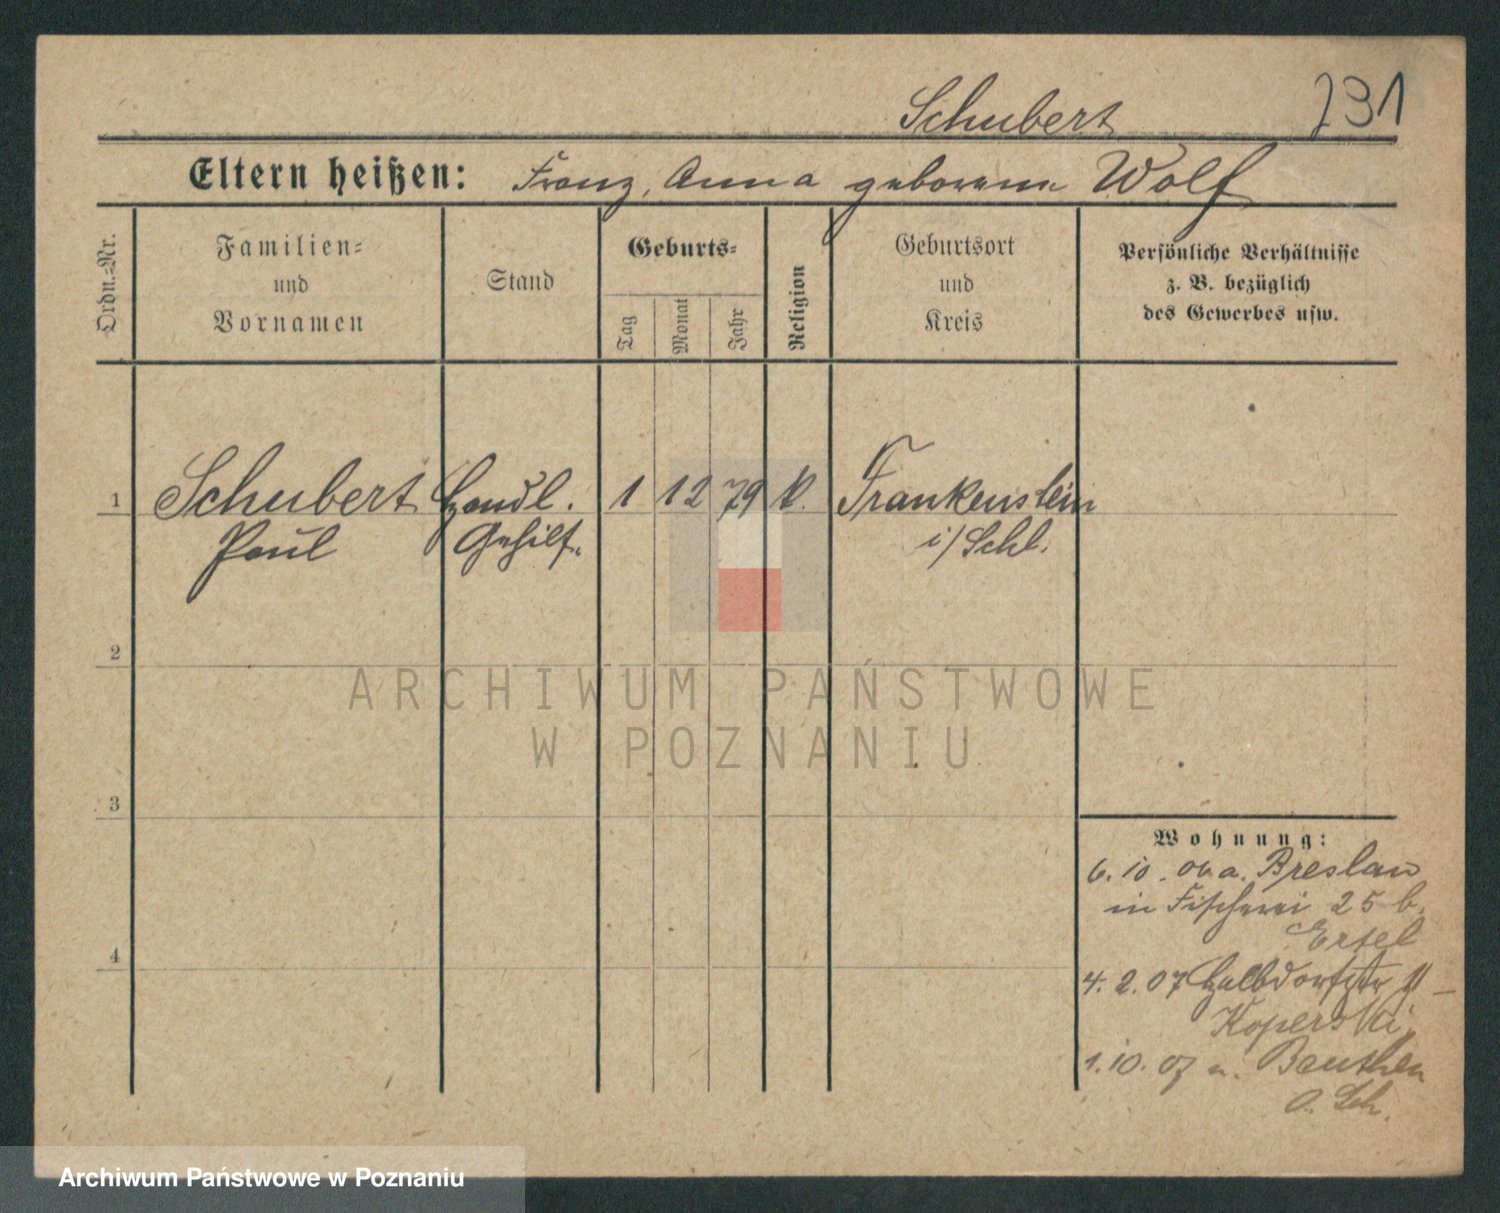 Schubert 731
Eltern heißen: Franz, Anna geborene Wolf
Ordn.-Nr.
Familien-
und
Vornamen
Stand
Geburts-
Tag
Monat
Jahr
Religion
Geburtsort
und
Kreis
Persönliche Verhältnisse
z. B. bezüglich
des Gewerbes usw.
1 Schubert Handl. 1 12 79 k. Frankenstein
Paul Gehilf. i/Schl.
2
3
4
Wohnung:
6. 10. 06 a. Breslau
in Fischerei 25 b.
Ertel
4. 2. 07 Halbdorfstr
Koperski
1. 10. 07 n. Beuthen
O. Sch.
ARCHIWUM PAŃSTWOWE
W POZNANIU
Archiwum Państwowe w Poznaniu